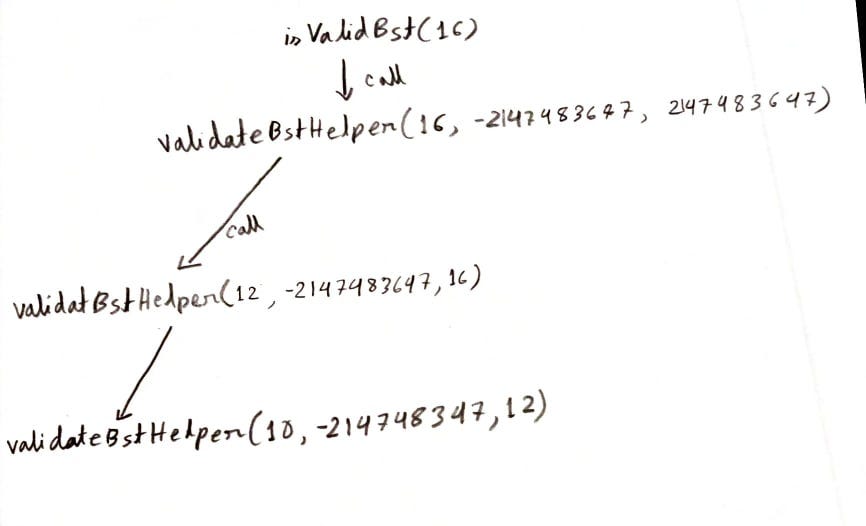 isValidBst(16)
call
validateBstHelper(16, -2147483647, 2147483647)
call
validatBstHelper(12, -2147483647, 16)
validateBstHelper(10, -214748347, 12)